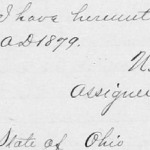 I have hereunt
A.D. 1879.
N.
Assignee
State of Ohio